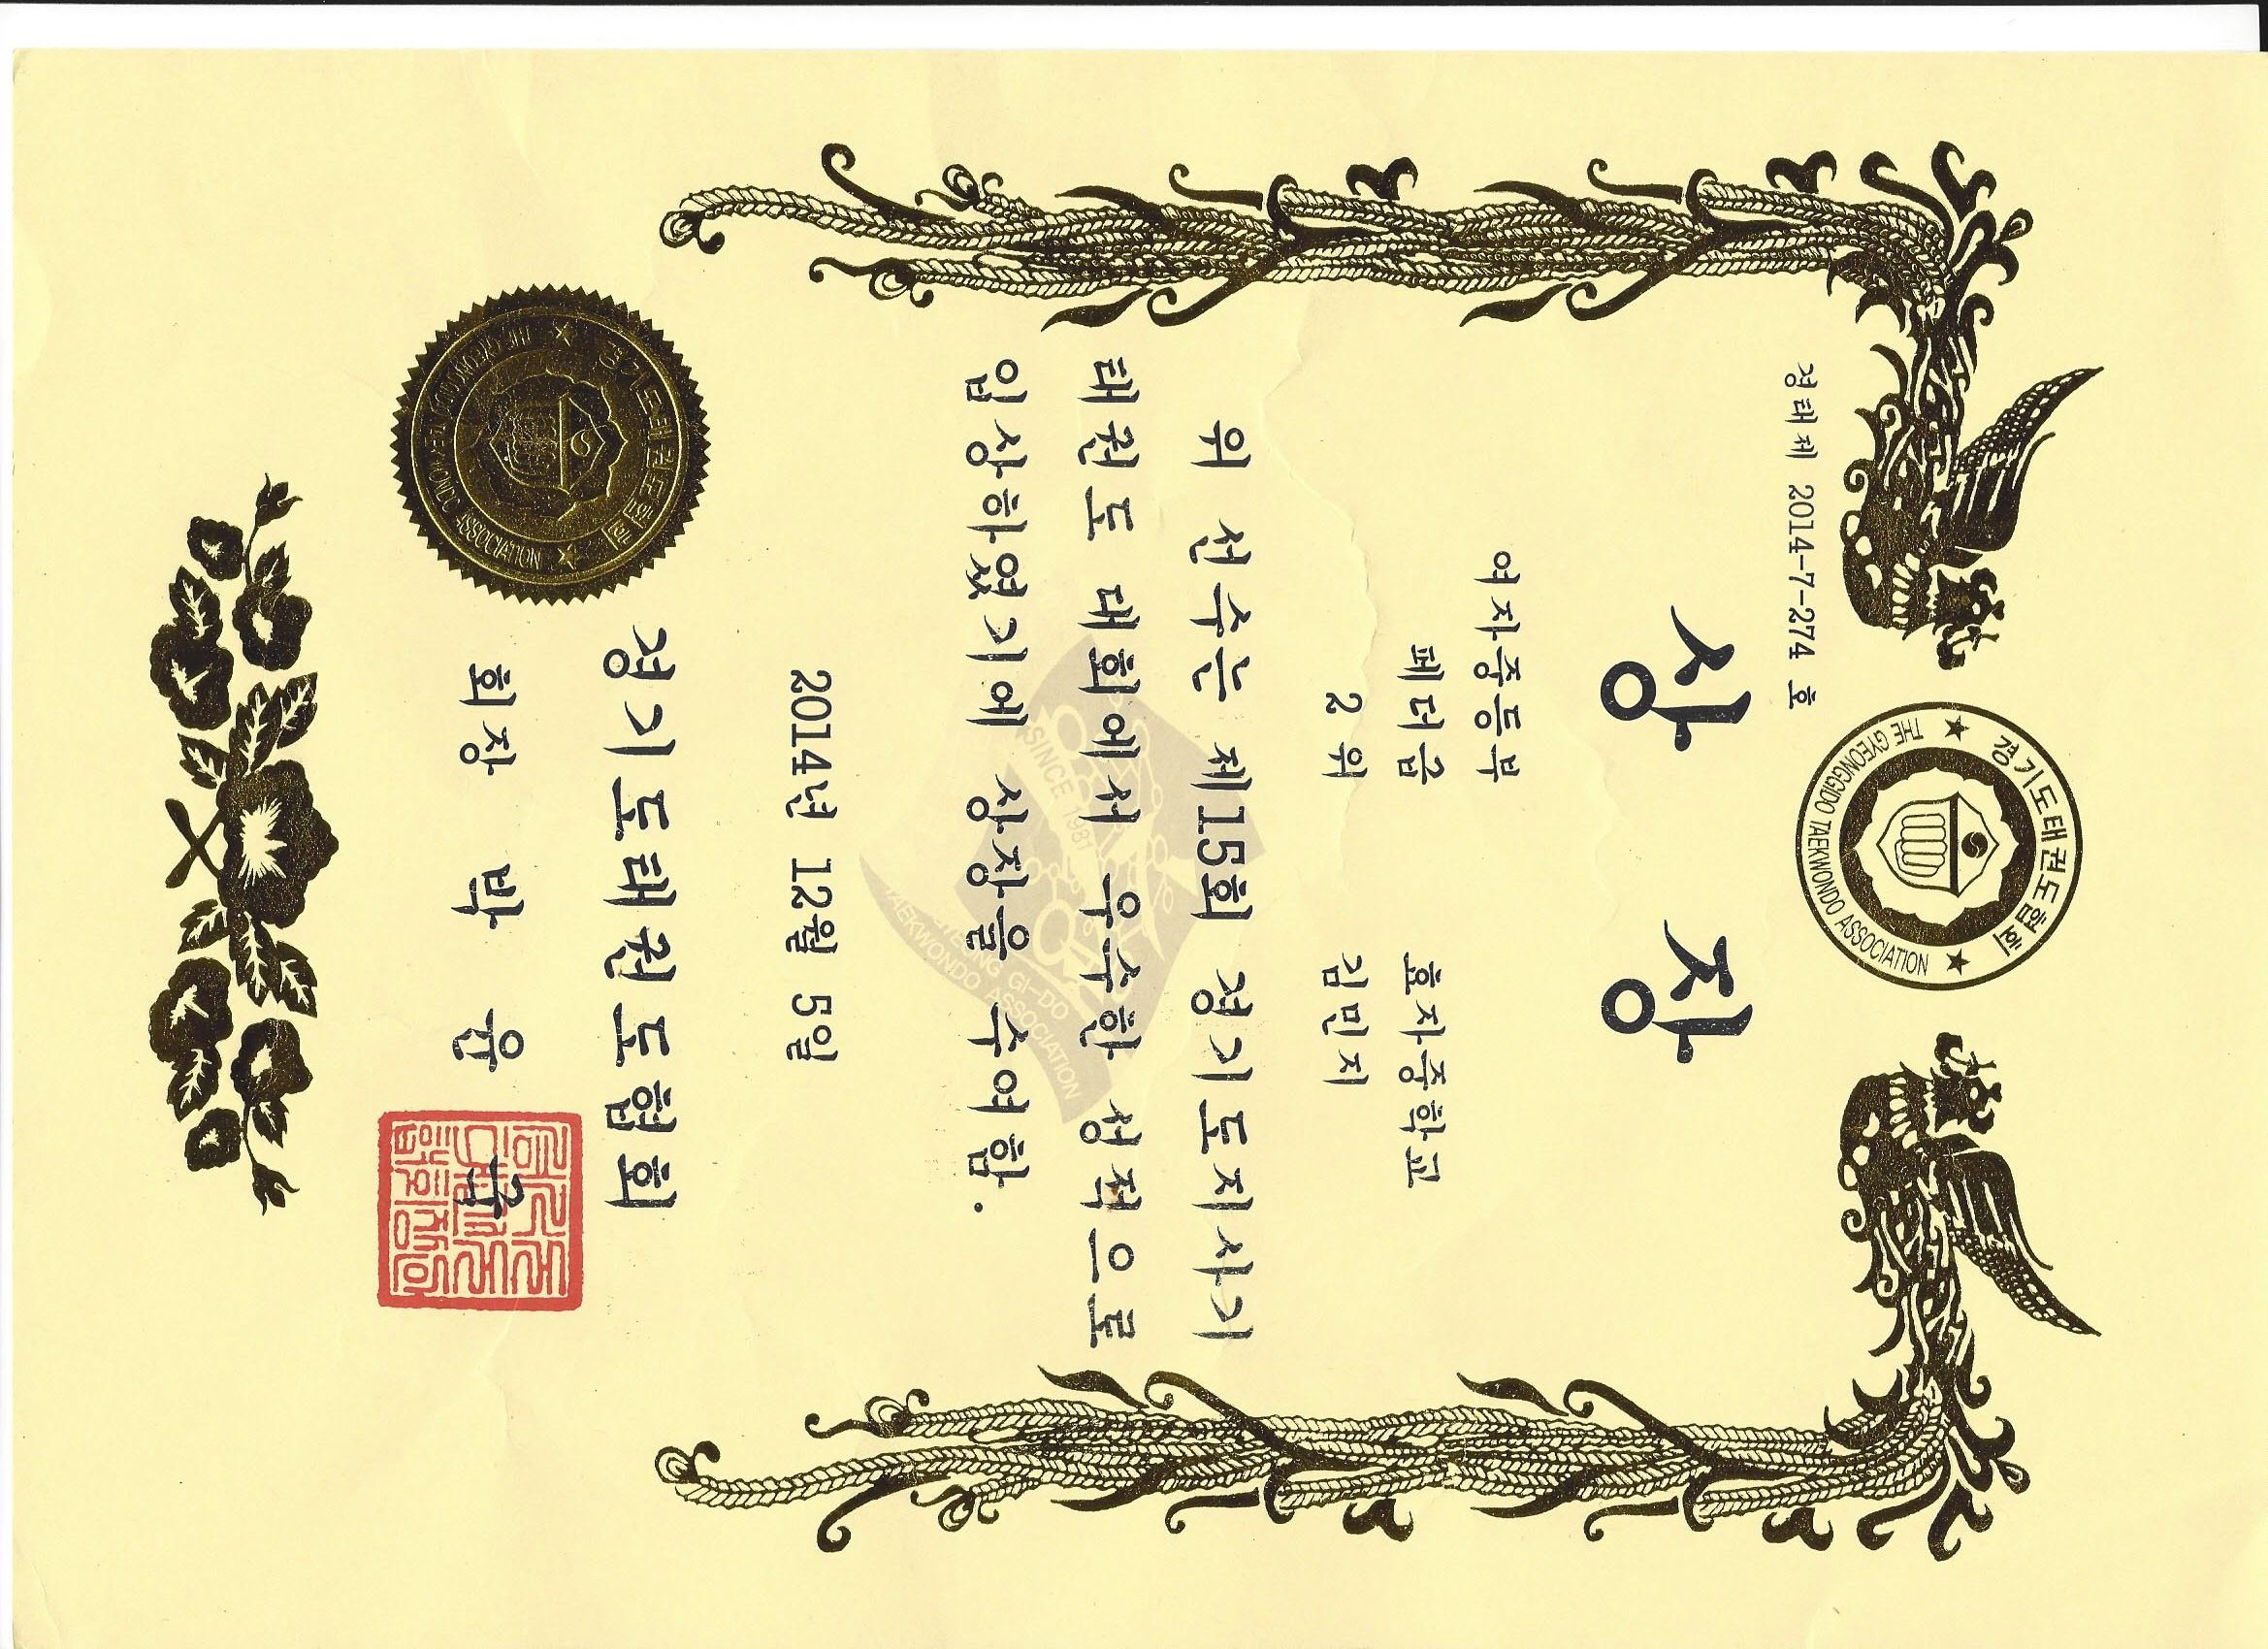 경태제 2014-7-274 호
경기도태권도협회
THE GYEONGGIDO TAEKWONDO ASSOCIATION
상 장
여자중등부
페더급 효자중학교
2 위 김민지
위 선수는 제15회 경기도지사기
태권도 대회에서 우수한 성적으로
입상하였기에 상장을 수여함.
SINCE 1981
GYEONG GI-DO
TAEKWONDO ASSOCIATION
2014년 12월 5일
경기도태권도협회
회장 박 윤 국
경기도태권도협회
THE GYEONGGIDO TAEKWONDO ASSOCIATION